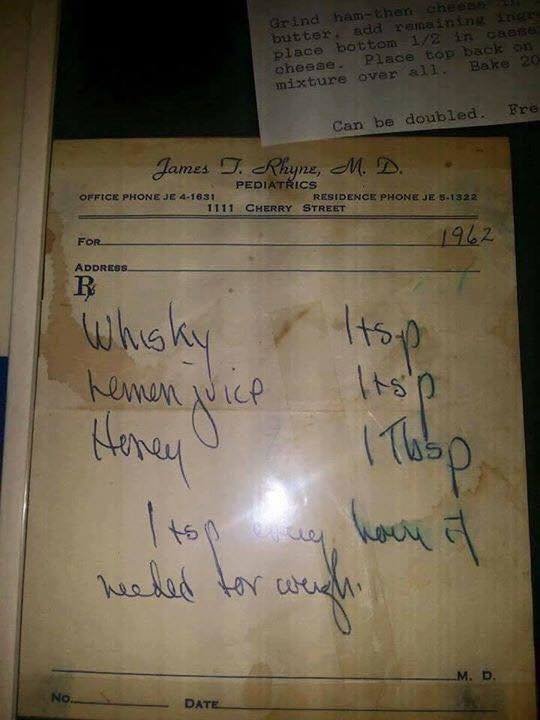 Grind ham-then cheese in
butter. add remaining ingr
place bottom 1/2 in casse
cheese. Place top back on
mixture over all. Bake 20
Can be doubled. Fre
James T. Rhyne, M. D.
PEDIATRICS
OFFICE PHONE JE 4-1631 RESIDENCE PHONE JE 5-1322
1111 CHERRY STREET
FOR 1962
ADDRESS
℞
Whisky 1 tsp
Lemon juice 1 tsp
Honey 1 Tbsp
1 tsp every hour if
needed for cough.
M. D.
NO. DATE